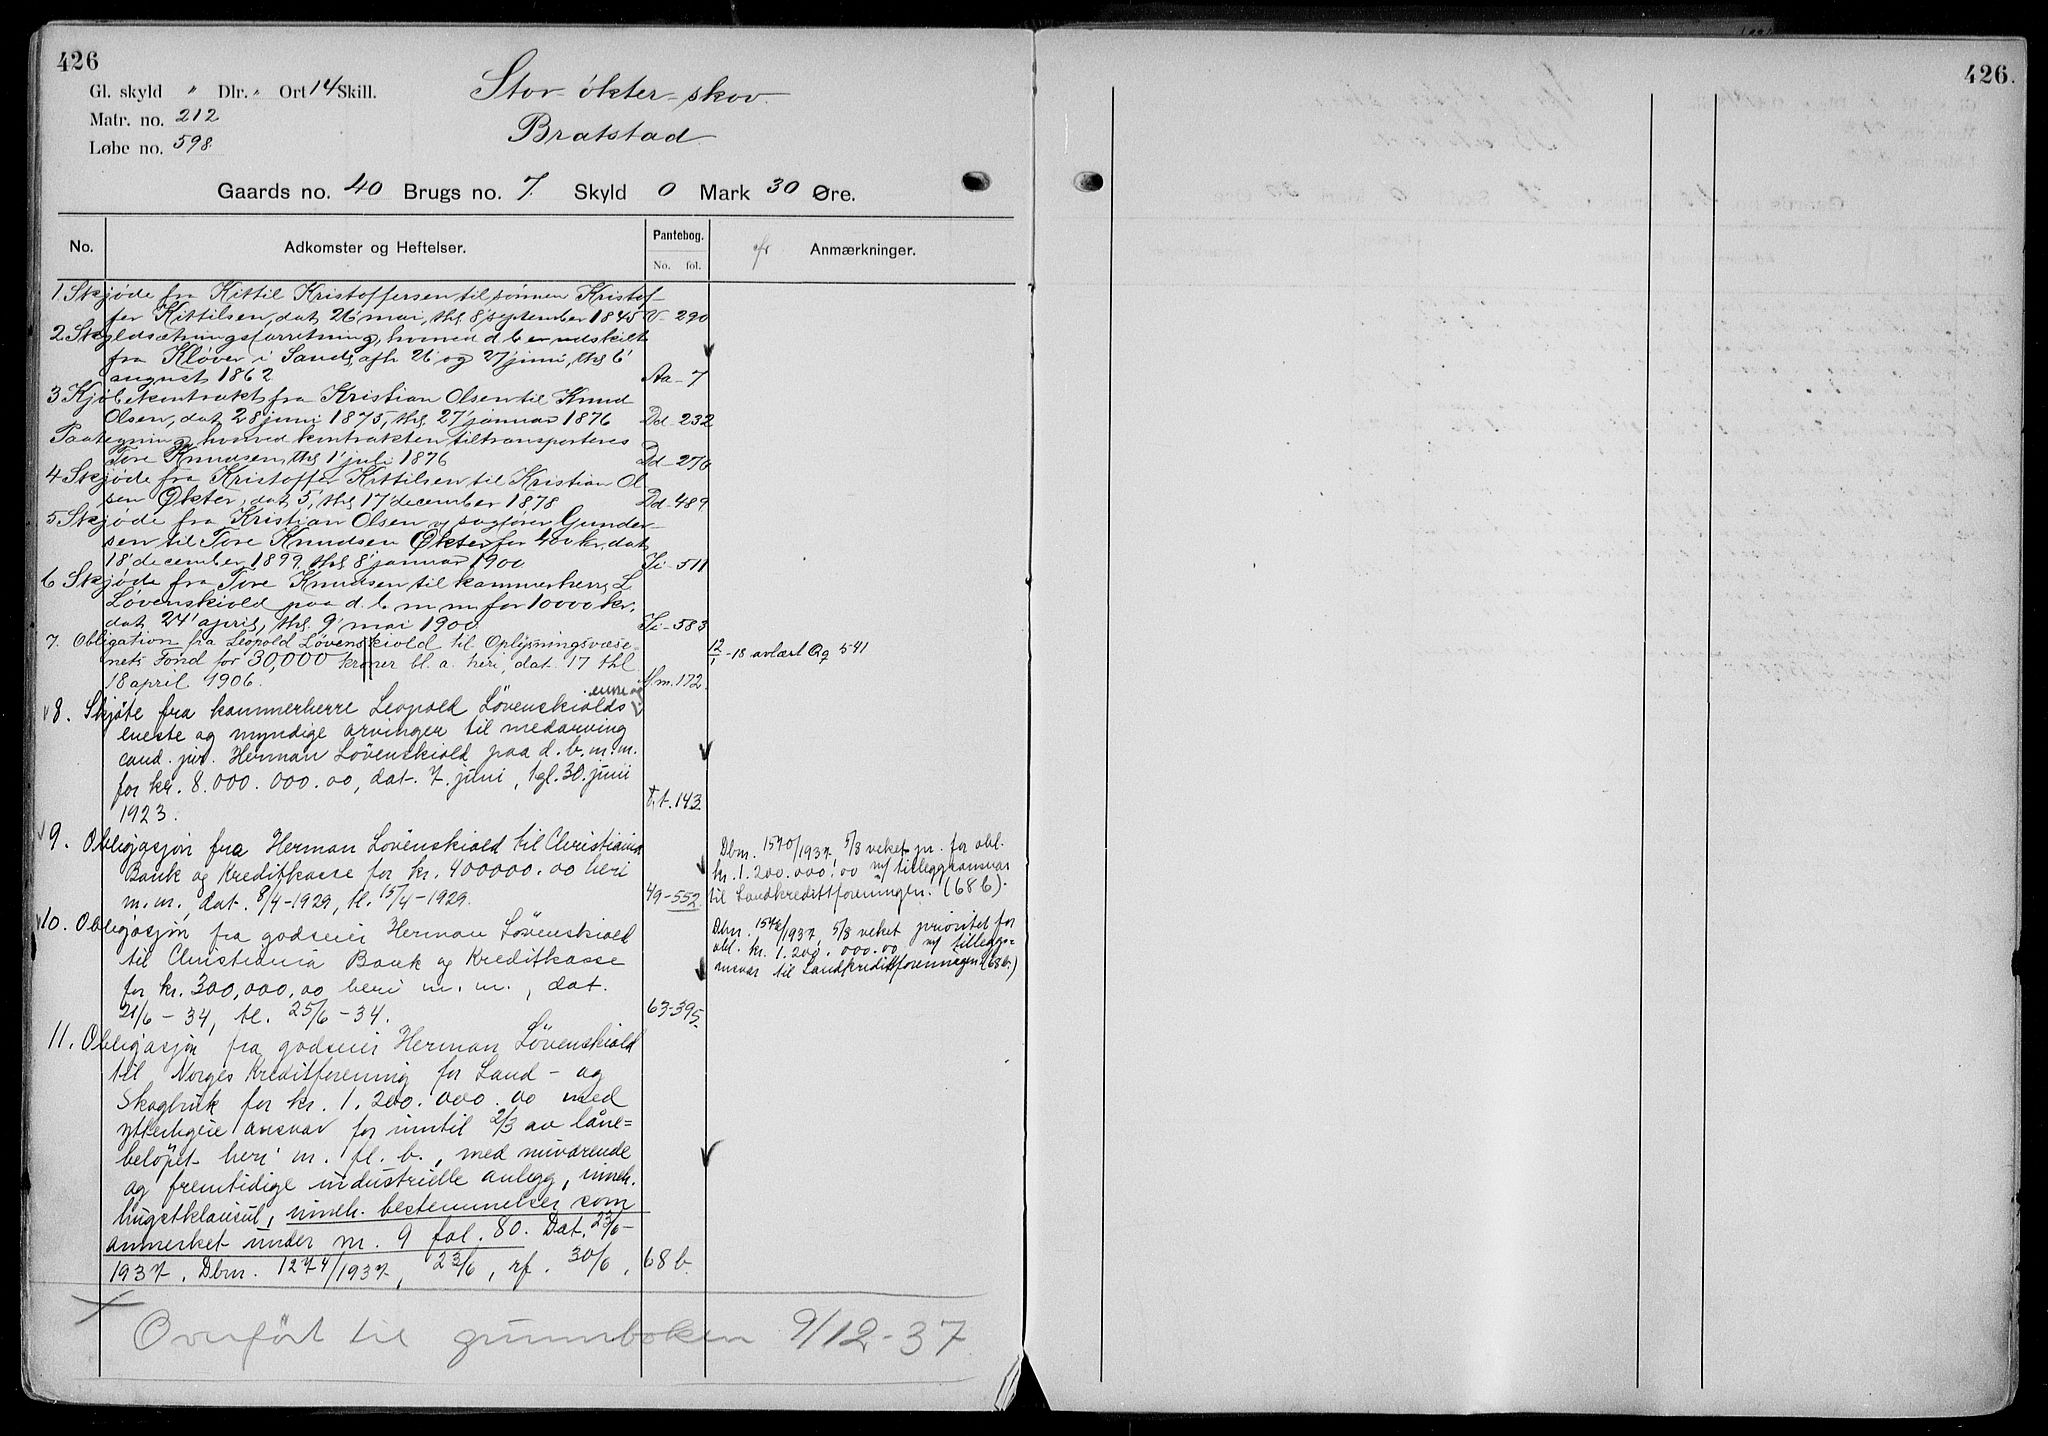 426
Gl. skyld " Dlr. " Ort 14 Skill.
Matr. no. 212
Løbe no. 598.
Stor-økter-skov.
Bratstad
Gaards no. 40 Brugs no. 7. Skyld 0 Mark 30 Øre.
No. Adkomster og Heftelser. Pantebog. Anmærkninger.
No. fol.
1 Skjøde fra Kittil Kristoffersen til sønnen Kristof-
fer Kittilsen, dat 26' mai, thl 8' september 1845 V-290
2 Skyldsætningsforretning, hvorved d b er udskilt
fra Kløver i Sands, afh 26' og 27' juni, thl 6'
august 1862 Aa-7
3 Kjøbekontrakt fra Kristian Olsen til Knud
Olsen, dat 28 juni 1875, thl 27' januar 1876 Dd-232
Paategning, hvorved kontrakten tiltransporteres
Tore Knudsen, thl 1' juli 1876 Dd-270
4 Skjøde fra Kristoffer Kittilsen til Kristian Ol
sen Økter, dat 5', thl 17' december 1878 Dd-489
5 Skjøde fra Kristian Olsen v/ sagfører Gunder-
sen til Tore Knudsen Økter for 400 kr, dat
18' december 1899, thl 8' januar 1900 Ii-511
6 Skjøde fra Tore Knudsen til kammerherre L
Løvenskiold paa d. b m m for 10000 kr.
dat 24' april, thl 9' mai 1900 Ii-583
7. Obligation fra Leopold Løvenskiold til Oplysningsvæse-
nets Fond for 30,000 kroner bl. a. heri, dat. 17 thl
18 april 1906. M.m. 172.
12/1-18 avlæst Qq 541
8. Skjøte fra kammerherre Leopold Løvenskiolds enke og
eneste og myndige arvinger til medarving
cand. jur. Herman Løvenskiold paa d. b. m. m.
for kr. 8.000.000.00, dat. 7. juni, tgl. 30. juni
1923. T.t. 143.
9. Obligasjon fra Herman Løvenskiold til Christiania
Bank og Kreditkasse for kr. 400000.00 heri
m.m., dat. 8/4-1929, tl. 15/4-1929. 49-552.
Dbnr. 1540/1937, 5/8 veket pr. for obl.
kr. 1.200.000.00 m/ tilleggsansvar
til Landkredittforeningen. (68 b).
10. Obligasjon fra godseier Herman Løvenskiold
til Christiania Bank og Kreditkasse
for kr. 300,000,00 heri m. m., dat.
21/6-34, tl. 25/6-34. 63-395.
Dbnr. 1542/1937, 5/8 veket prioritet for
obl. kr. 1.200.000.00 m/ tilleggs-
ansvar til Landkredittforeningen (68 b.)
11. Obligasjon fra godseier Herman Løvenskiold
til Norges Kreditforening for Land- og
Skogbruk for kr. 1.200.000.00 med
ytterligere ansvar for inntil 2/3 av låne=
beløpet heri m. fl. b., med nuværende
og fremtidige industrielle anlegg, inneh.
hugstklausul, inneh. bestemmelser som
anmerket under nr. 9 fol. 80. Dat. 23/6-
1937. Dbnr. 1274/1937, 23/6, rf. 30/6. 68 b.
Overført til grunnboken 9/12-37
426.